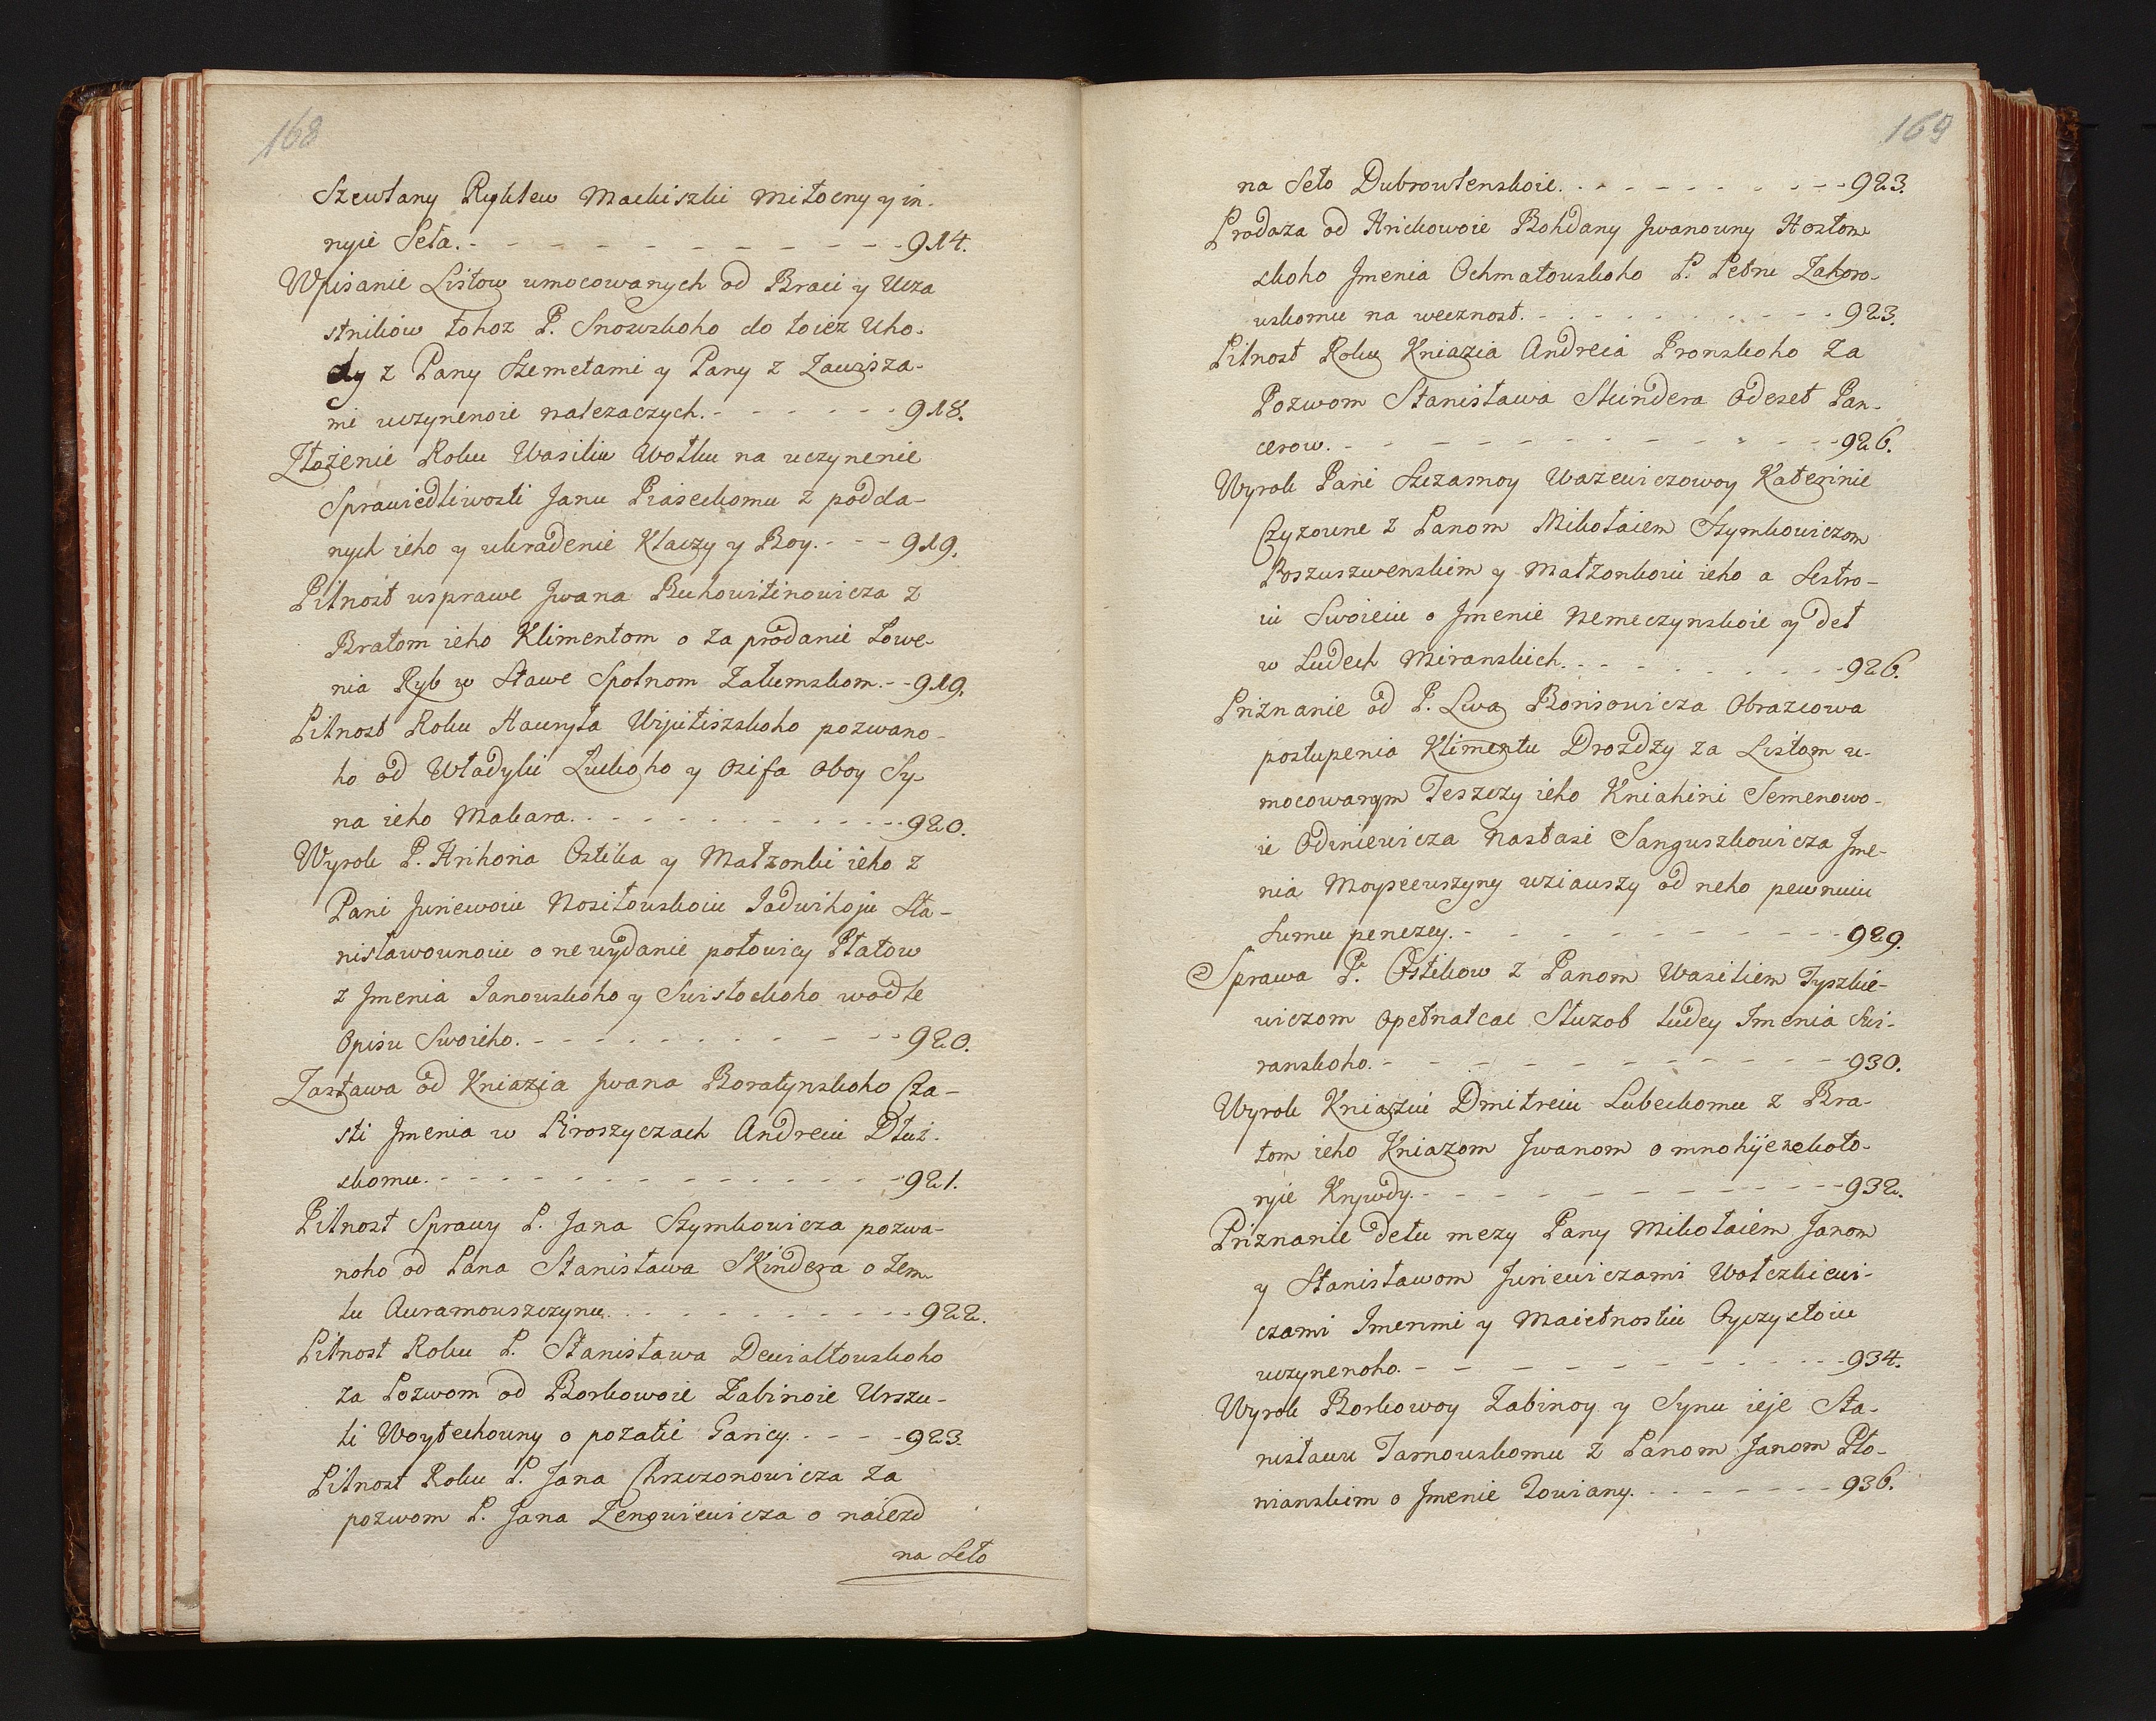 168
Szewłany Rykłew Mackiszki Miłocny y in-
nyie Seła. 914.
Wpisanie Listow umocowanych od Braci y Ucza
stnikow tohoz P. Snowskoho do toiez Uho-
dy z Pany Szemetami y Pany z Zawisza-
mi uczynenoie nalezaczych. 918.
Złożenie Roku Wasiliu Wołku na uczynenie
Sprawiedliwosti Janu Piaseckomu z podda-
nych ieho y ukradenie Klaczy y Boy. 919.
Pilnost usprawe Jwana Buhowitinowicza z
Bratom ieho Klimentom o za prodanie Łowe-
nia Ryb w Stawe Spolnom Zatumskom. 919.
Pilnost Roku Hawryła Wijutiszskoho pozwano-
ho od Władyki Łuckoho y Ozifa oboy Sy-
na ieho Makara. 920.
Wyrok P. Hrihoria Ostika y Małzonki ieho z
Pani Juriewoiu Nosiłowskoiu Jadwihoju Sta-
nisławownoiu o ne wydanie połowicy Płatow
z Jmenia Janowskoho y Swistockoho wodle
Opisu Swoieho. 920.
Zastawa od Kniazia Jwana Boratynskoho Cza-
sti Jmenia w Piroszyczach Andreiu Dłuż-
skomu. 921.
Pilnost Sprawy P. Jana Szymkowicza pozwa-
noho od Pana Stanisława Skindera o Zem-
lu Awramowszczynu. 922.
Pilnost Roku P. Stanisława Dewialtowskoho
za Pozwom od Borkowoie Zabinoie Urszu-
li Woytechowny o pozatie Ganicy. 923.
Pilnost Roku P. Jana Chrzczonowicza Za
pozwom P. Jana Zenowiewicza o naiezd
na Seło
169
na Seło Dubrowlenskoie. 923.
Prodaza od Hrickowoie Bohdany Jwanowny Hostom-
skoho Jmenia Ochmatowskoho P. Petru Zahoro-
wskomu na wecznost. 923.
Pilnost Roku Kniazia Andreia Pronskoho Za
Pozwom Stanisława Skindera Odeset Pan-
cerow. 926.
Wyrok Pani Szczasnoy Wazewiczowoy Katerinie
Czyzowne z Panom Mikołaiem Szymkowiczom
Poszuszwenskim y Małzonkoiu ieho a Sestro-
iu Swoieiu o Jmenie Nemeczynskoie y deł
w Ludech Miranskich. 926.
Priznanie od P. Lwa Borisowicza Obrazcowa
postupenia Klimentu Drozdży za Listom u-
mocowanym Teszczy ieho Kniahini Semenowo-
ie Odiniewicza Nastasi Sanguszkowicza Jme-
nia Moyseewszyny wziawszy od neho pewnuiu
Sumu penezey. 929.
Sprawa P. Ostikow z Panom Wasiliem Tyszkie-
wiczom Opełnatcat Służob ludey Jmenia Swi-
ranskoho. 930.
Wyrok Kniaziu Dmitreiu Lubeckomu z Bra-
tom ieho Kniazom Jwanom o mnohije nekoto-
ryie Krywdy. 932.
Priznanie Dełu mezy Pany Mikołaiem Janom
y Stanisławom Juriewiczami Wołczkiewi-
czami Jmenmi y Maietnostiu Oyczystoiu
uczynenoho. 934.
Wyrok Borkowoy Zabinoy y Synu ieje Sta-
nisławu Tarnowskomu z Panom Janom Pło-
nianskim o Jmenie Łowiany. 936.